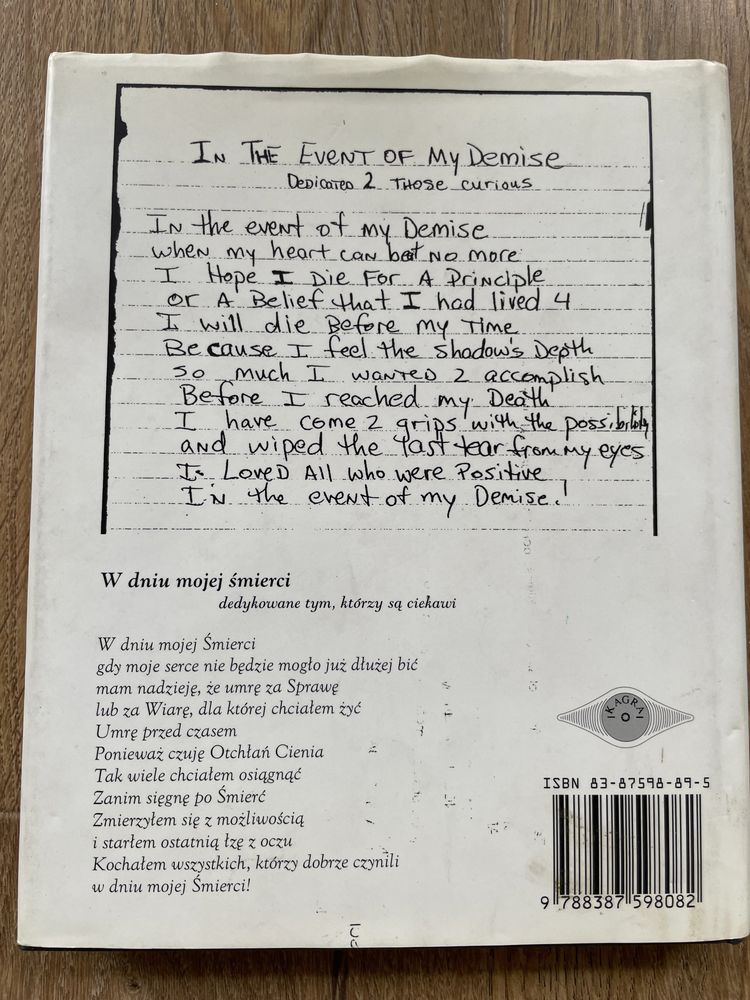 IN THE EVENT OF My Demise
DEDICATED 2 THOSE curious
IN the event of my Demise
when my heart can beat no more
I Hope I Die For A Principle
or A Belief that I had lived 4
I will die Before my Time
Because I feel the shadow's Depth
so much I wanted 2 accomplish
Before I reached my Death
I have come 2 grips with the possibility
and wiped the last tear from My eyes
I Loved All who were Positive
In the event of my Demise!
W dniu mojej śmierci
dedykowane tym, którzy są ciekawi
W dniu mojej Śmierci
gdy moje serce nie będzie mogło już dłużej bić
mam nadzieję, że umrę za Sprawę
lub za Wiarę, dla której chciałem żyć
Umrę przed czasem
Ponieważ czuję Otchłań Cienia
Tak wiele chciałem osiągnąć
Zanim sięgnę po Śmierć
Zmierzyłem się z możliwością
i starłem ostatnią łzę z oczu
Kochałem wszystkich, którzy dobrze czynili
w dniu mojej Śmierci!
KAGRA
ISBN 83-87598-89-5
9 788387 598082